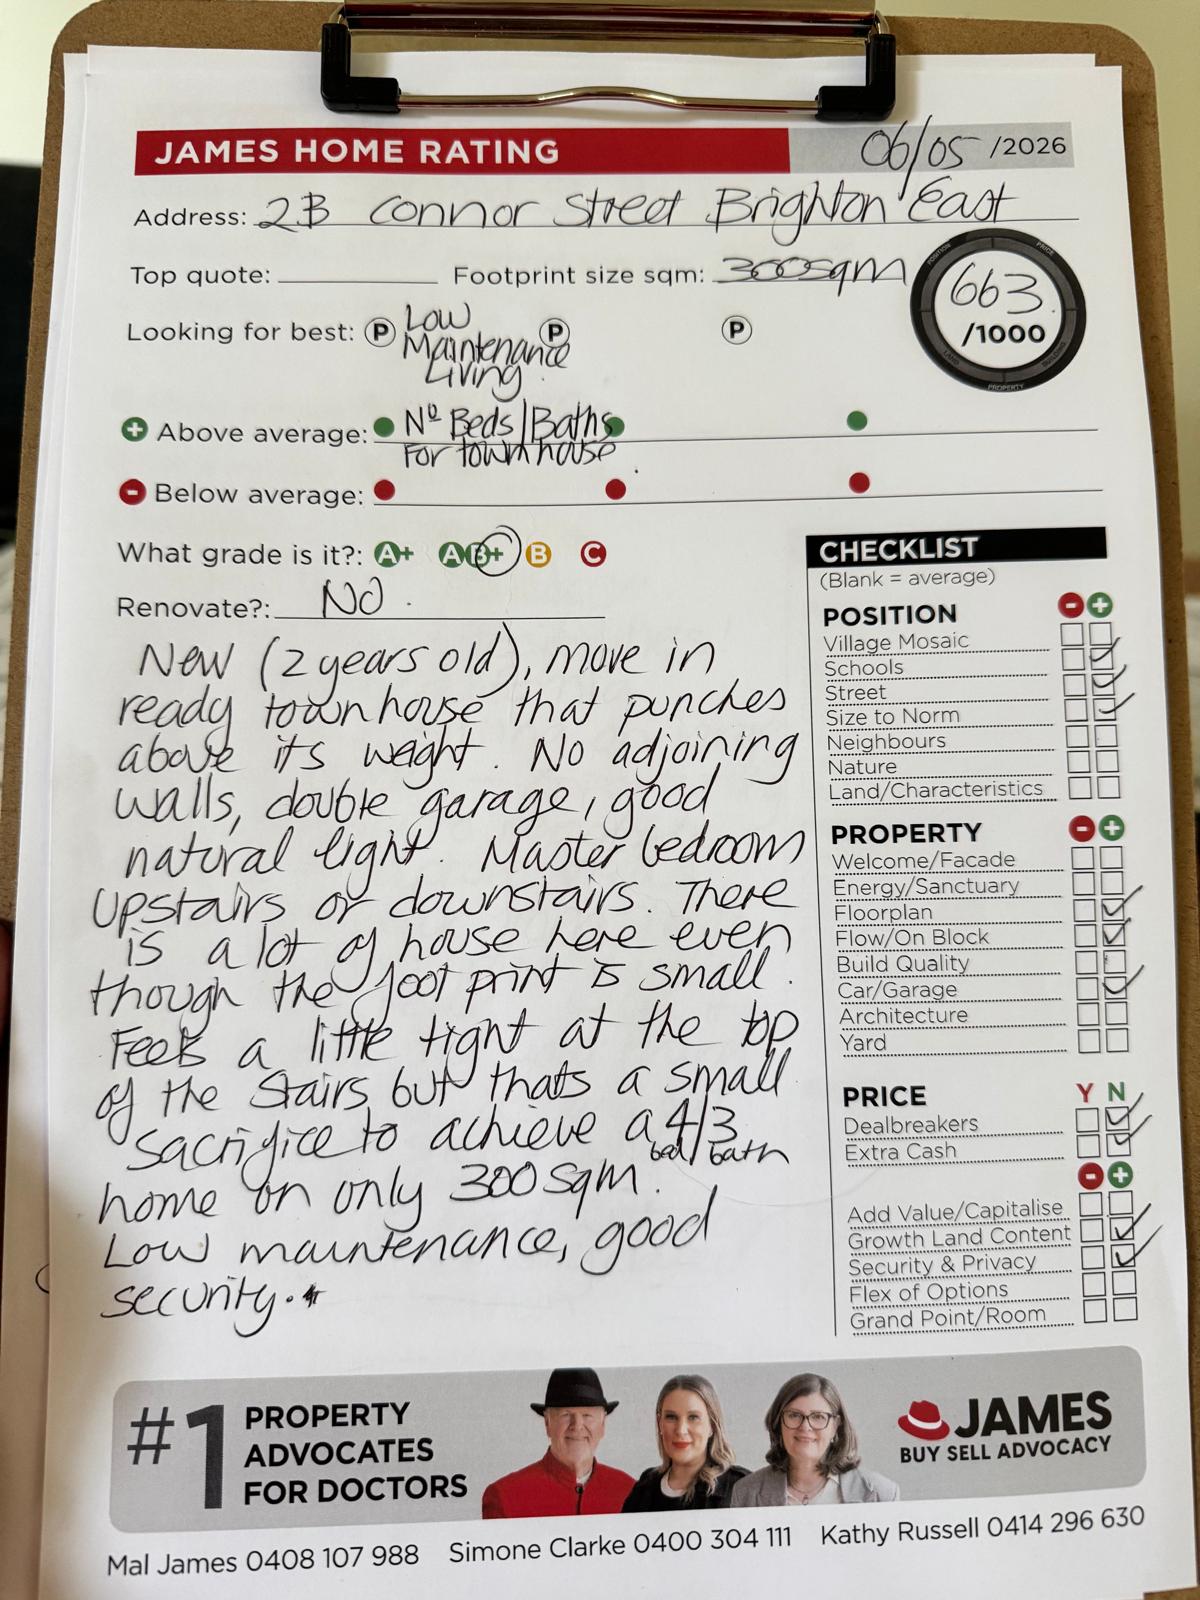 JAMES HOME RATING 06/05 /2026
Address: 2B Connor Street Brighton East
Top quote: Footprint size sqm: 300sqm
663
/1000
POSITION PRICE BUILDING PROPERTY LAND
Looking for best: P Low P P
Maintenance
Living.
+ Above average: No Beds/Baths
For townhouse
- Below average:
What grade is it?: A+ A B+ B C
Renovate?: No.
New (2 years old), move in
ready townhouse that punches
above its weight. No adjoining
walls, double garage, good
natural light. Master bedroom
upstairs or downstairs. There
is a lot of house here even
though the foot print is small.
Feels a little tight at the top
of the stairs but thats a small
sacrifice to achieve a 4/3
bed/bath
home on only 300sqm.
Low maintenance, good
security.
CHECKLIST
(Blank = average)
POSITION - +
Village Mosaic
Schools
Street
Size to Norm
Neighbours
Nature
Land/Characteristics
PROPERTY - +
Welcome/Facade
Energy/Sanctuary
Floorplan
Flow/On Block
Build Quality
Car/Garage
Architecture
Yard
PRICE Y N
Dealbreakers
Extra Cash
- +
Add Value/Capitalise
Growth Land Content
Security & Privacy
Flex of Options
Grand Point/Room
#1 PROPERTY
ADVOCATES
FOR DOCTORS
JAMES
BUY SELL ADVOCACY
Mal James 0408 107 988 Simone Clarke 0400 304 111 Kathy Russell 0414 296 630